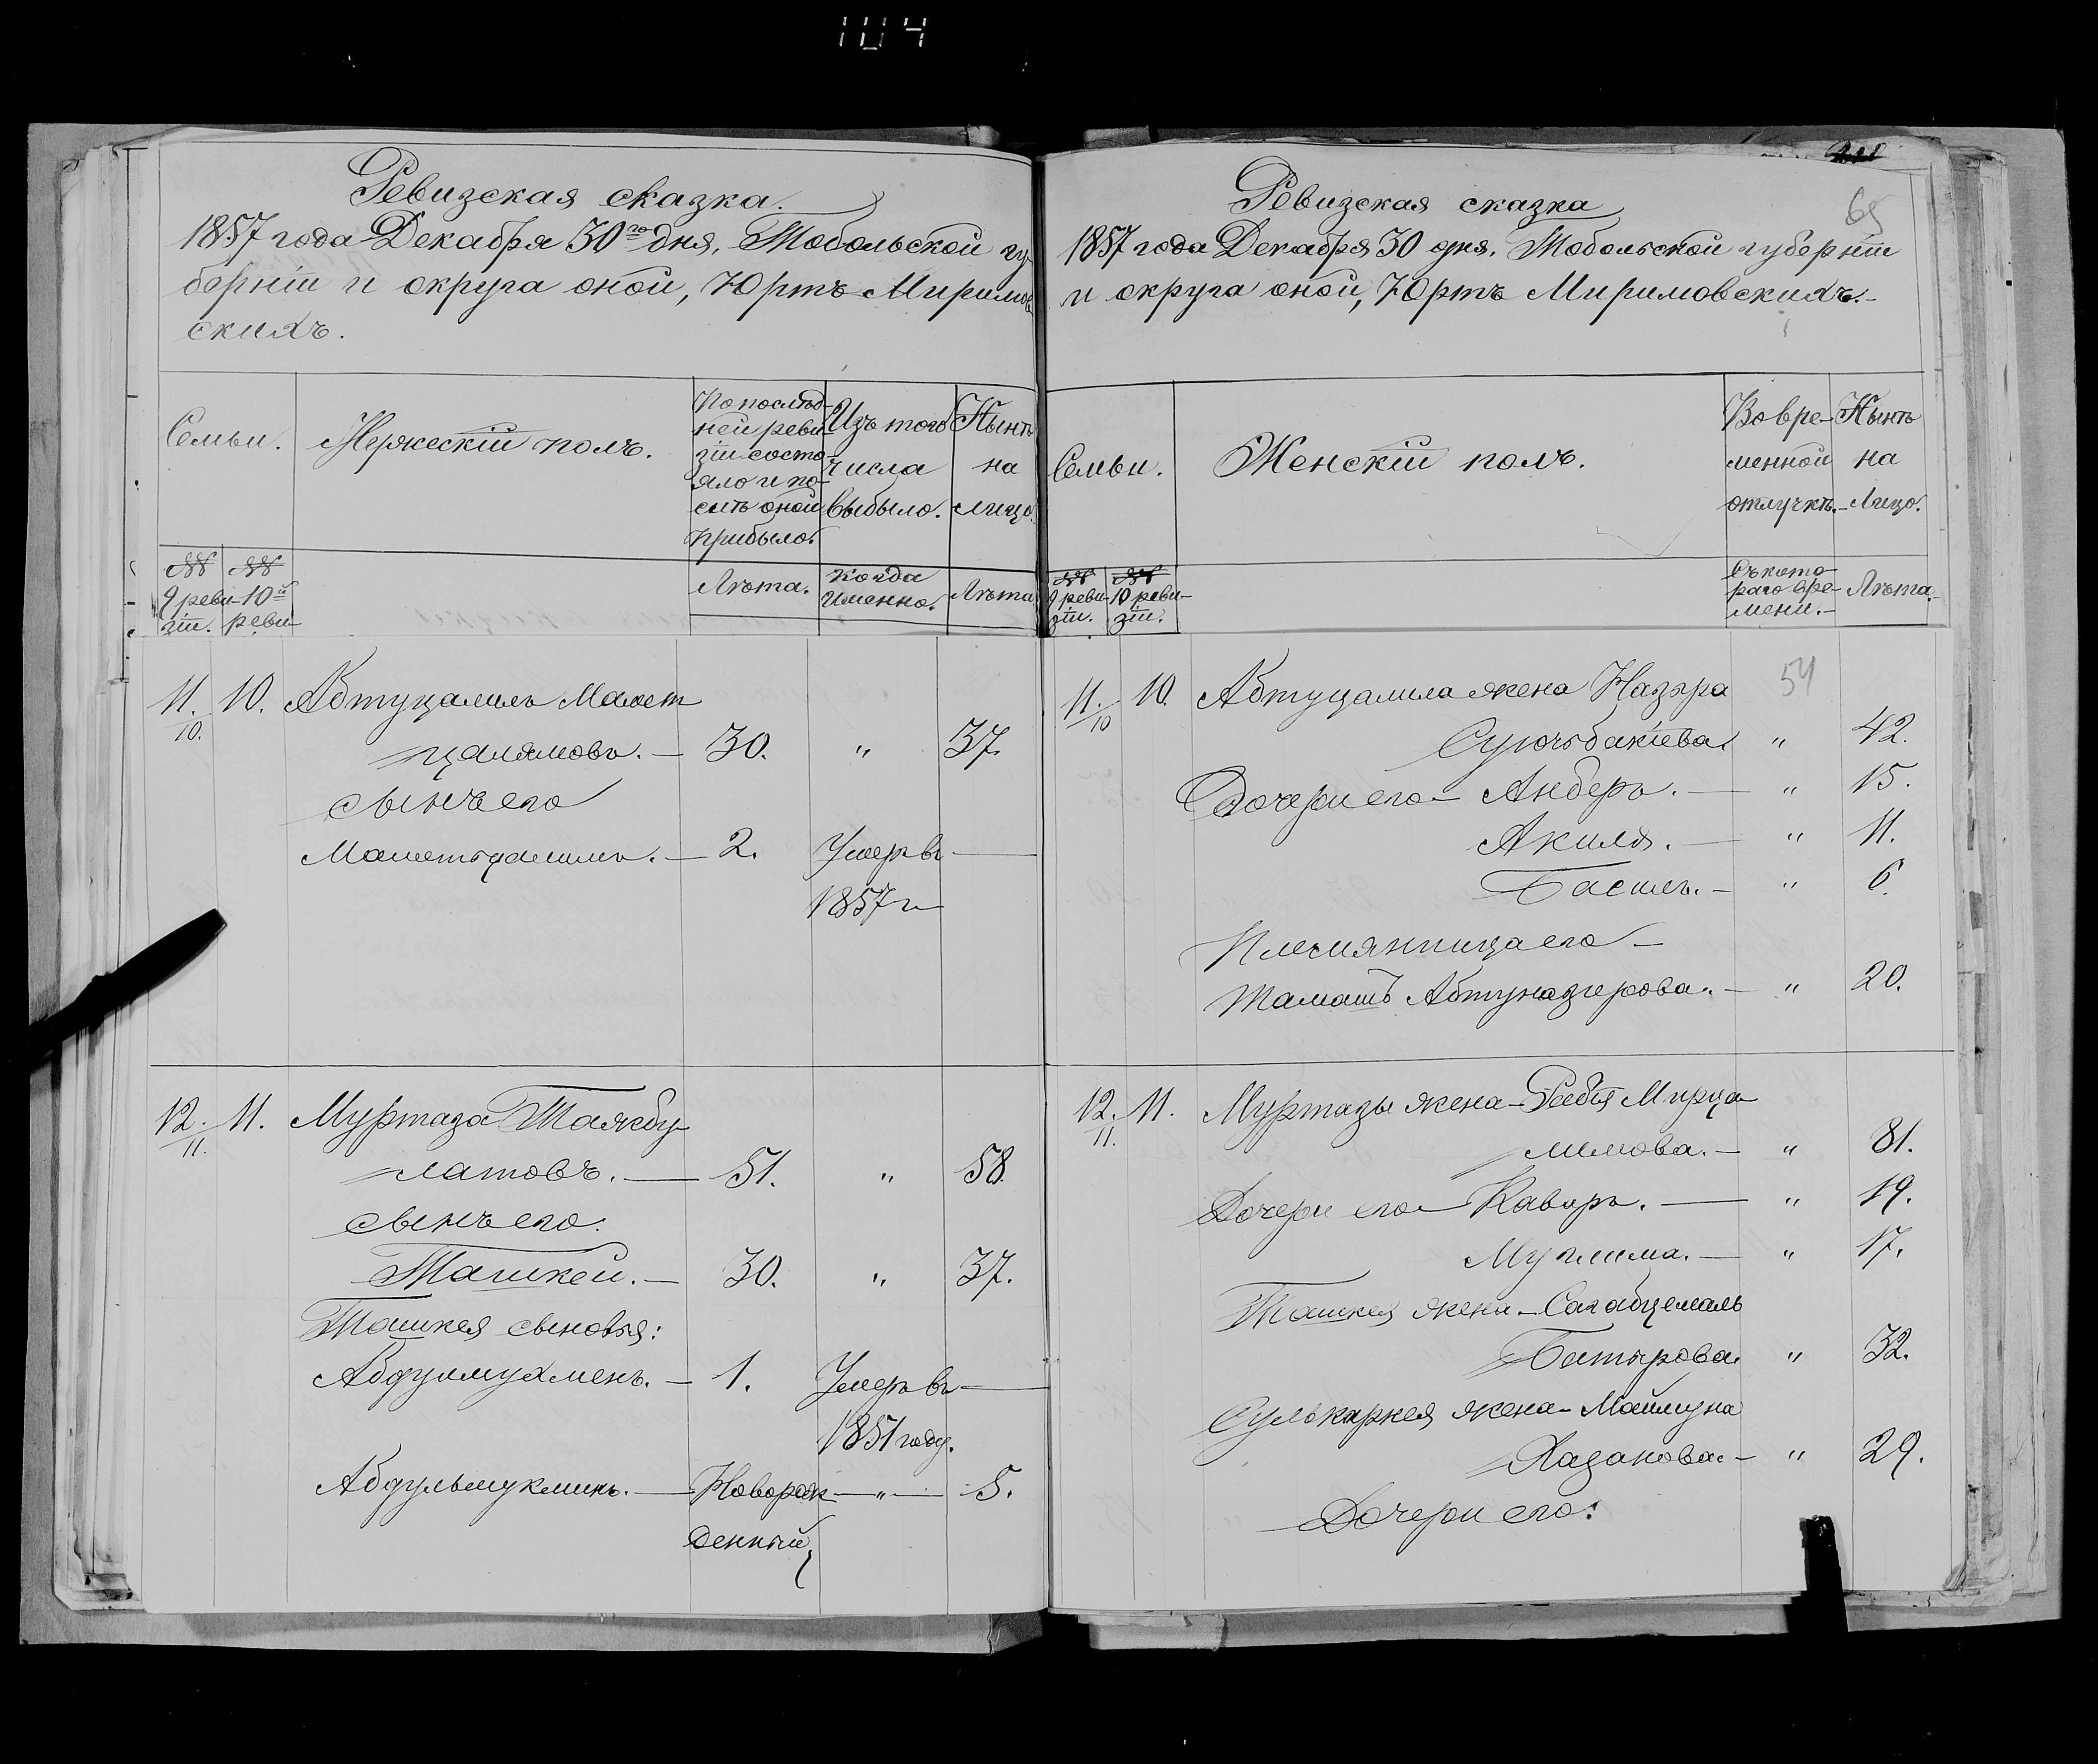 104
Ревизская сказка.
1857 года Декабря 30го дня, Тобольской гу-
берніи и округа оной, Юртъ Миримов
скихъ.
Семьи.
Мужескій полъ.
По послѣд-
ней реви-
зіи состо-
яло и по-
слѣ оной
прибыло.
Изъ того
числа
выбыло.
Нынѣ
на
лицо.
№№
9 реви-
зіи.
№№
10й
реви-
Лѣта.
Когда
именно.
Лѣта
11.
10.
10. Абтуцалиль Мамет
цалямовъ. — 30. " 37.
сынъ его
Маметцалимъ. — 2. Умеръ въ —
1857 г
12.
11.
11. Муртаза Таякбу-
латовъ. — 51. " 58.
сынъ его.
Ташкей. — 30. " 37.
Ташкея сыновья:
Абдулмухменъ. — 1. Умеръ въ —
1851 году.
Абдульмукминъ. — Новорож — " — 5.
денный
65
Ревизская сказка
1857 года Декабря 30 дня, Тобольской губерніи
и округа оной, Юртъ Миримовскихъ.
Семьи.
Женскій полъ.
Во вре-
менной
отлучкѣ.
Нынѣ
на
Лицо.
№№
9 реви-
зіи.
№№
10 реви-
зіи.
Съ кото-
раго вре-
мени.
Лѣта.
54
11.
10
10. Абтуцалила жена Назыра
" 42.
Дочери его — Анберъ. — " 15.
Акиля. — " 11.
" 6.
Племянница его —
Абтуназирова. — " 20.
12.
11.
11. Муртазы жена — Ребія Мирца-
лимова. — " 81.
Дочери его — Каваръ. — " 19.
Муглима. — " 17.
Ташкея жена — Сагабцемаль
Батырова. " 32.
Сулькаркея жена — Маймуна
Казанова. — " 29.
Дочери его: